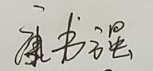 康书强